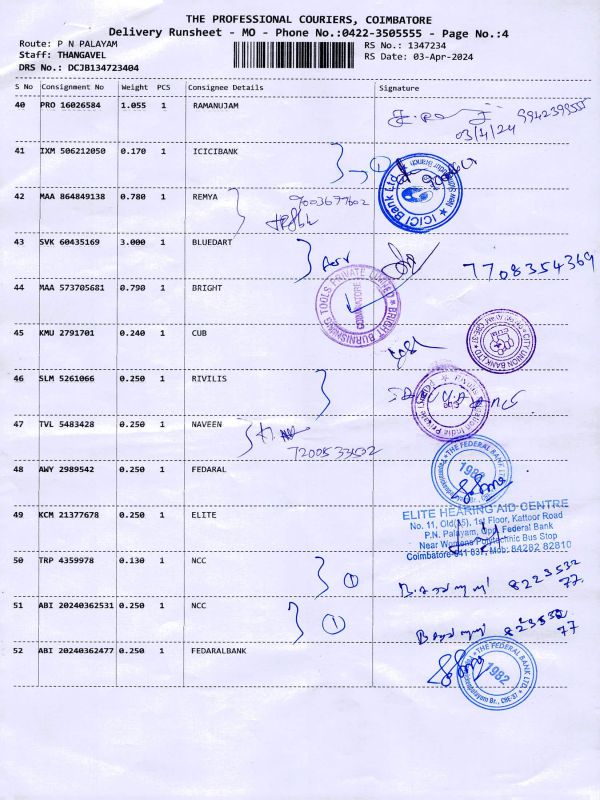 THE PROFESSIONAL COURIERS, COIMBATORE
Delivery Runsheet - MO - Phone No.:0422-3505555 - Page No.:4
Route: P N PALAYAM
RS No.: 1347234
Staff: THANGAVEL
RS Date: 03-Apr-2024
DRS No.: DCJB134723404
S No Consignment No Weight PCS Consignee Details Signature
40 PRO 16026584 1.055 1 RAMANUJAM
9942399555
03/4/24
41 IXM 506212050 0.170 1 ICICIBANK
ICICI Bank Ltd
42 MAA 864849138 0.780 1 REMYA
9003677602
43 SVK 60435169 3.000 1 BLUEDART
7708354369
44 MAA 573705681 0.790 1 BRIGHT
BRIGHT BURNISHING TOOLS PRIVATE LIMITED
COIMBATORE
45 KMU 2791701 0.240 1 CUB
CITY UNION BANK LTD
CBE-37
46 SLM 5261066 0.250 1 RIVILIS
47 TVL 5483428 0.250 1 NAVEEN
48 AWY 2989542 0.250 1 FEDARAL
THE FEDERAL BANK LTD.
1982
49 KCM 21377678 0.250 1 ELITE
ELITE HEARING AID CENTRE
No. 11, Old(15), 1st Floor, Kattoor Road
P.N. Palayam, Opp. Federal Bank
Near Womens Polytechnic Bus Stop
Coimbatore-641 037, Mob: 84282 82810
50 TRP 4359978 0.130 1 NCC
1
8223532
77
51 ABI 20240362531 0.250 1 NCC
1
8223532
77
52 ABI 20240362477 0.250 1 FEDARALBANK
THE FEDERAL BANK LTD.
1982